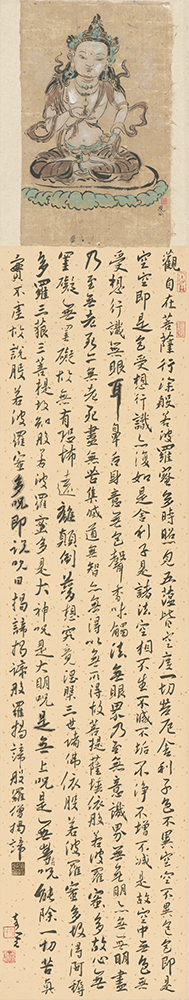 觀自在菩薩行深般若波羅蜜多時照見五蘊皆空度一切苦厄舍利子色不異空空不異色色即是
空空即是色受想行識亦復如是舍利子是諸法空相不生不滅不垢不淨不增不減是故空中無色無
受想行識無眼耳鼻舌身意無色聲香味觸法無眼界乃至無意識界無無明亦無無明盡
乃至無老死亦無老死盡無苦集滅道無智亦無得以無所得故菩提薩埵依般若波羅蜜多故心無
罣礙無罣礙故無有恐怖遠離顛倒夢想究竟涅槃三世諸佛依般若波羅蜜多故得阿耨
多羅三藐三菩提故知般若波羅蜜多是大神咒是大明咒是無上咒是無等等咒能除一切苦真
實不虛故說般若波羅蜜多咒即說咒曰揭諦揭諦般羅揭諦般羅僧揭諦